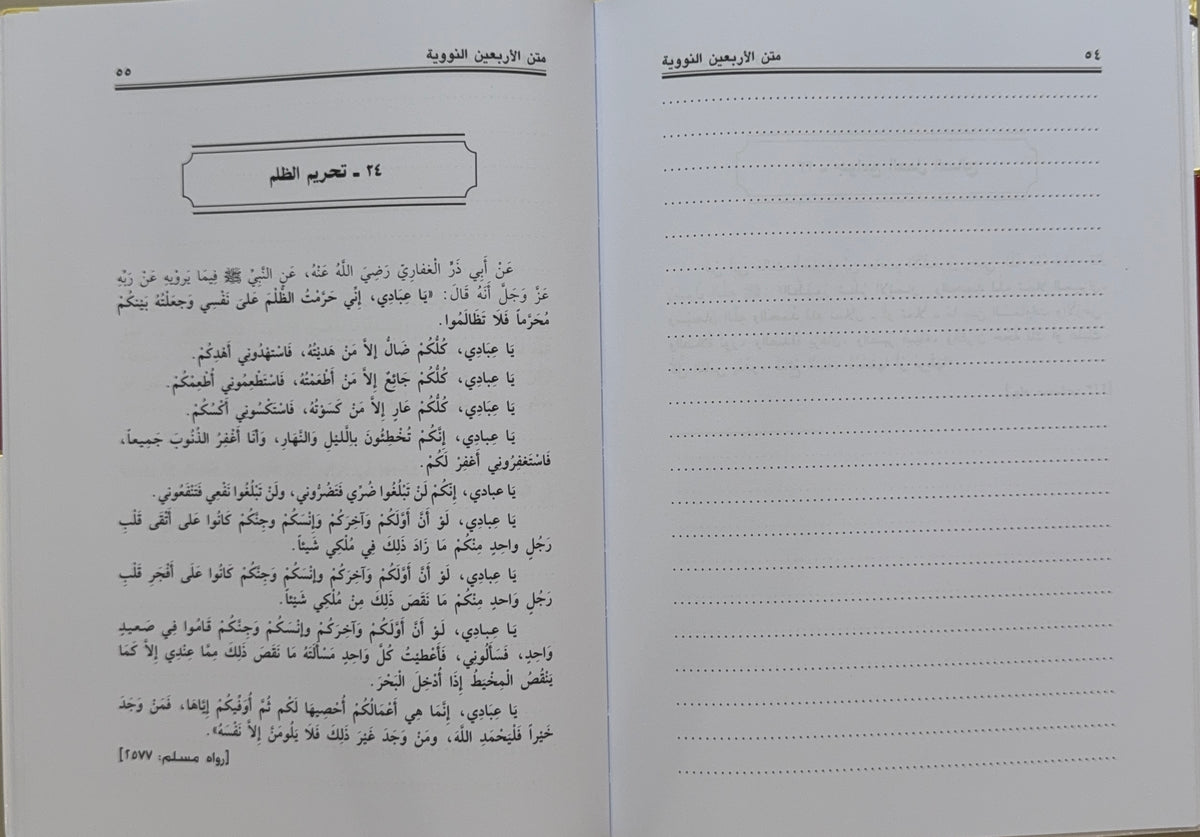 ٥٤
متن الأربعين النووية
متن الأربعين النووية
٥٥
٢٤ ـ تحريم الظلم
عَنْ أَبِي ذَرٍّ الْغفاريّ رَضِيَ اللَّهُ عَنْهُ، عَنِ النَّبِيِّ ﷺ فِيمَا يَرويْهِ عَنْ رَبِّهِ
عَزَّ وَجَلَّ أَنَّهُ قَالَ: «يَا عِبَادِي، إِنِّي حَرَّمْتُ الظُّلْمَ عَلىَ نَفْسِي وَجعلْتُهُ بَيْنكُمْ
مُحَرَّماً فَلَا تَظَالَمُوا.
يَا عِبَادِي، كُلُّكُمْ ضَالٌ إلاَّ مَنْ هَديْتُهُ، فَاسْتهْدُوني أَهْدِكُمْ.
يَا عِبَادِي، كُلُّكُمْ جَائِعٌ إلاَّ مَنْ أَطْعَمْتُهُ، فَاسْتَطْعِمُوني أُطْعِمْكُمْ.
يَا عِبَادِي، كُلُّكُمْ عَارٍ إلاَّ مَنْ كَسَوْتُهُ، فَاسْتَكْسُوني أَكْسُكُمْ.
يَا عِبَادِي، إِنَّكُمْ تُخْطِئُونَ بِاللَّيْلِ وَالنَّهَارِ، وَأنَا أَغْفِرُ الذُنُوبَ جَمِيعاً،
فَاسْتَغفِرُونِي أَغفِرْ لَكُمْ.
يَا عبادي، إِنّكُمْ لَنْ تَبْلُغُوا ضُرِّي فَتَضُرُّوني، ولَنْ تَبْلُغُوا نَفْعِي فَتَنْفَعُوني.
يَا عِبادِي، لَوْ أَنَّ أَوَّلَكُمْ وَآخِرَكُمْ وَإِنْسَكُمْ وجِنَّكُمْ كَانُوا عَلى أَتْقَى قَلْبِ
رَجُلٍ واحِدٍ مِنْكُمْ مَا زَادَ ذَلِكَ فِي مُلْكِي شَيْئاً.
يَا عِبادِي، لَوْ أَنَّ أَوَّلَكُمْ وَآخِرَكُمْ وإنْسَكُمْ وَجِنَّكُمْ كَانُوا عَلَى أَفْجَرِ قَلْبِ
رَجُلٍ وَاحدٍ مِنْكُمْ مَا نَقَصَ ذَلِكَ مِنْ مُلْكِي شَيْئاً.
يَا عِبادِي، لَوْ أَنَّ أَوَّلَكُمْ وَآخِرَكُمْ وإنْسَكُمْ وَجِنَّكُمْ قَامُوا فِي صَعيدٍ
وَاحِدٍ، فَسَأَلُونِي، فَأَعْطَيْتُ كُلَّ وَاحِدٍ مَسْأَلَتَهُ مَا نَقَصَ ذَلِكَ مِمَّا عِنْدِي إلاَّ كَمَا
يَنْقُصُ الْمِخْيَطُ إِذَا أُدْخِلَ الْبَحْرَ.
يَا عِبَادِي، إِنَّمَا هِي أَعْمَالُكُمْ أُحْصِيهَا لَكُم ثُمَّ أُوَفِّيكُمْ إيَّاهَا، فَمَنْ وَجَدَ
خَيْراً فَلْيَحْمَدِ اللَّهَ، ومَنْ وَجَدَ غَيْرَ ذَلِكَ فَلَا يَلُومَنَّ إلاَّ نَفْسَهُ».
[رواه مسلم: ٢٥٧٧]